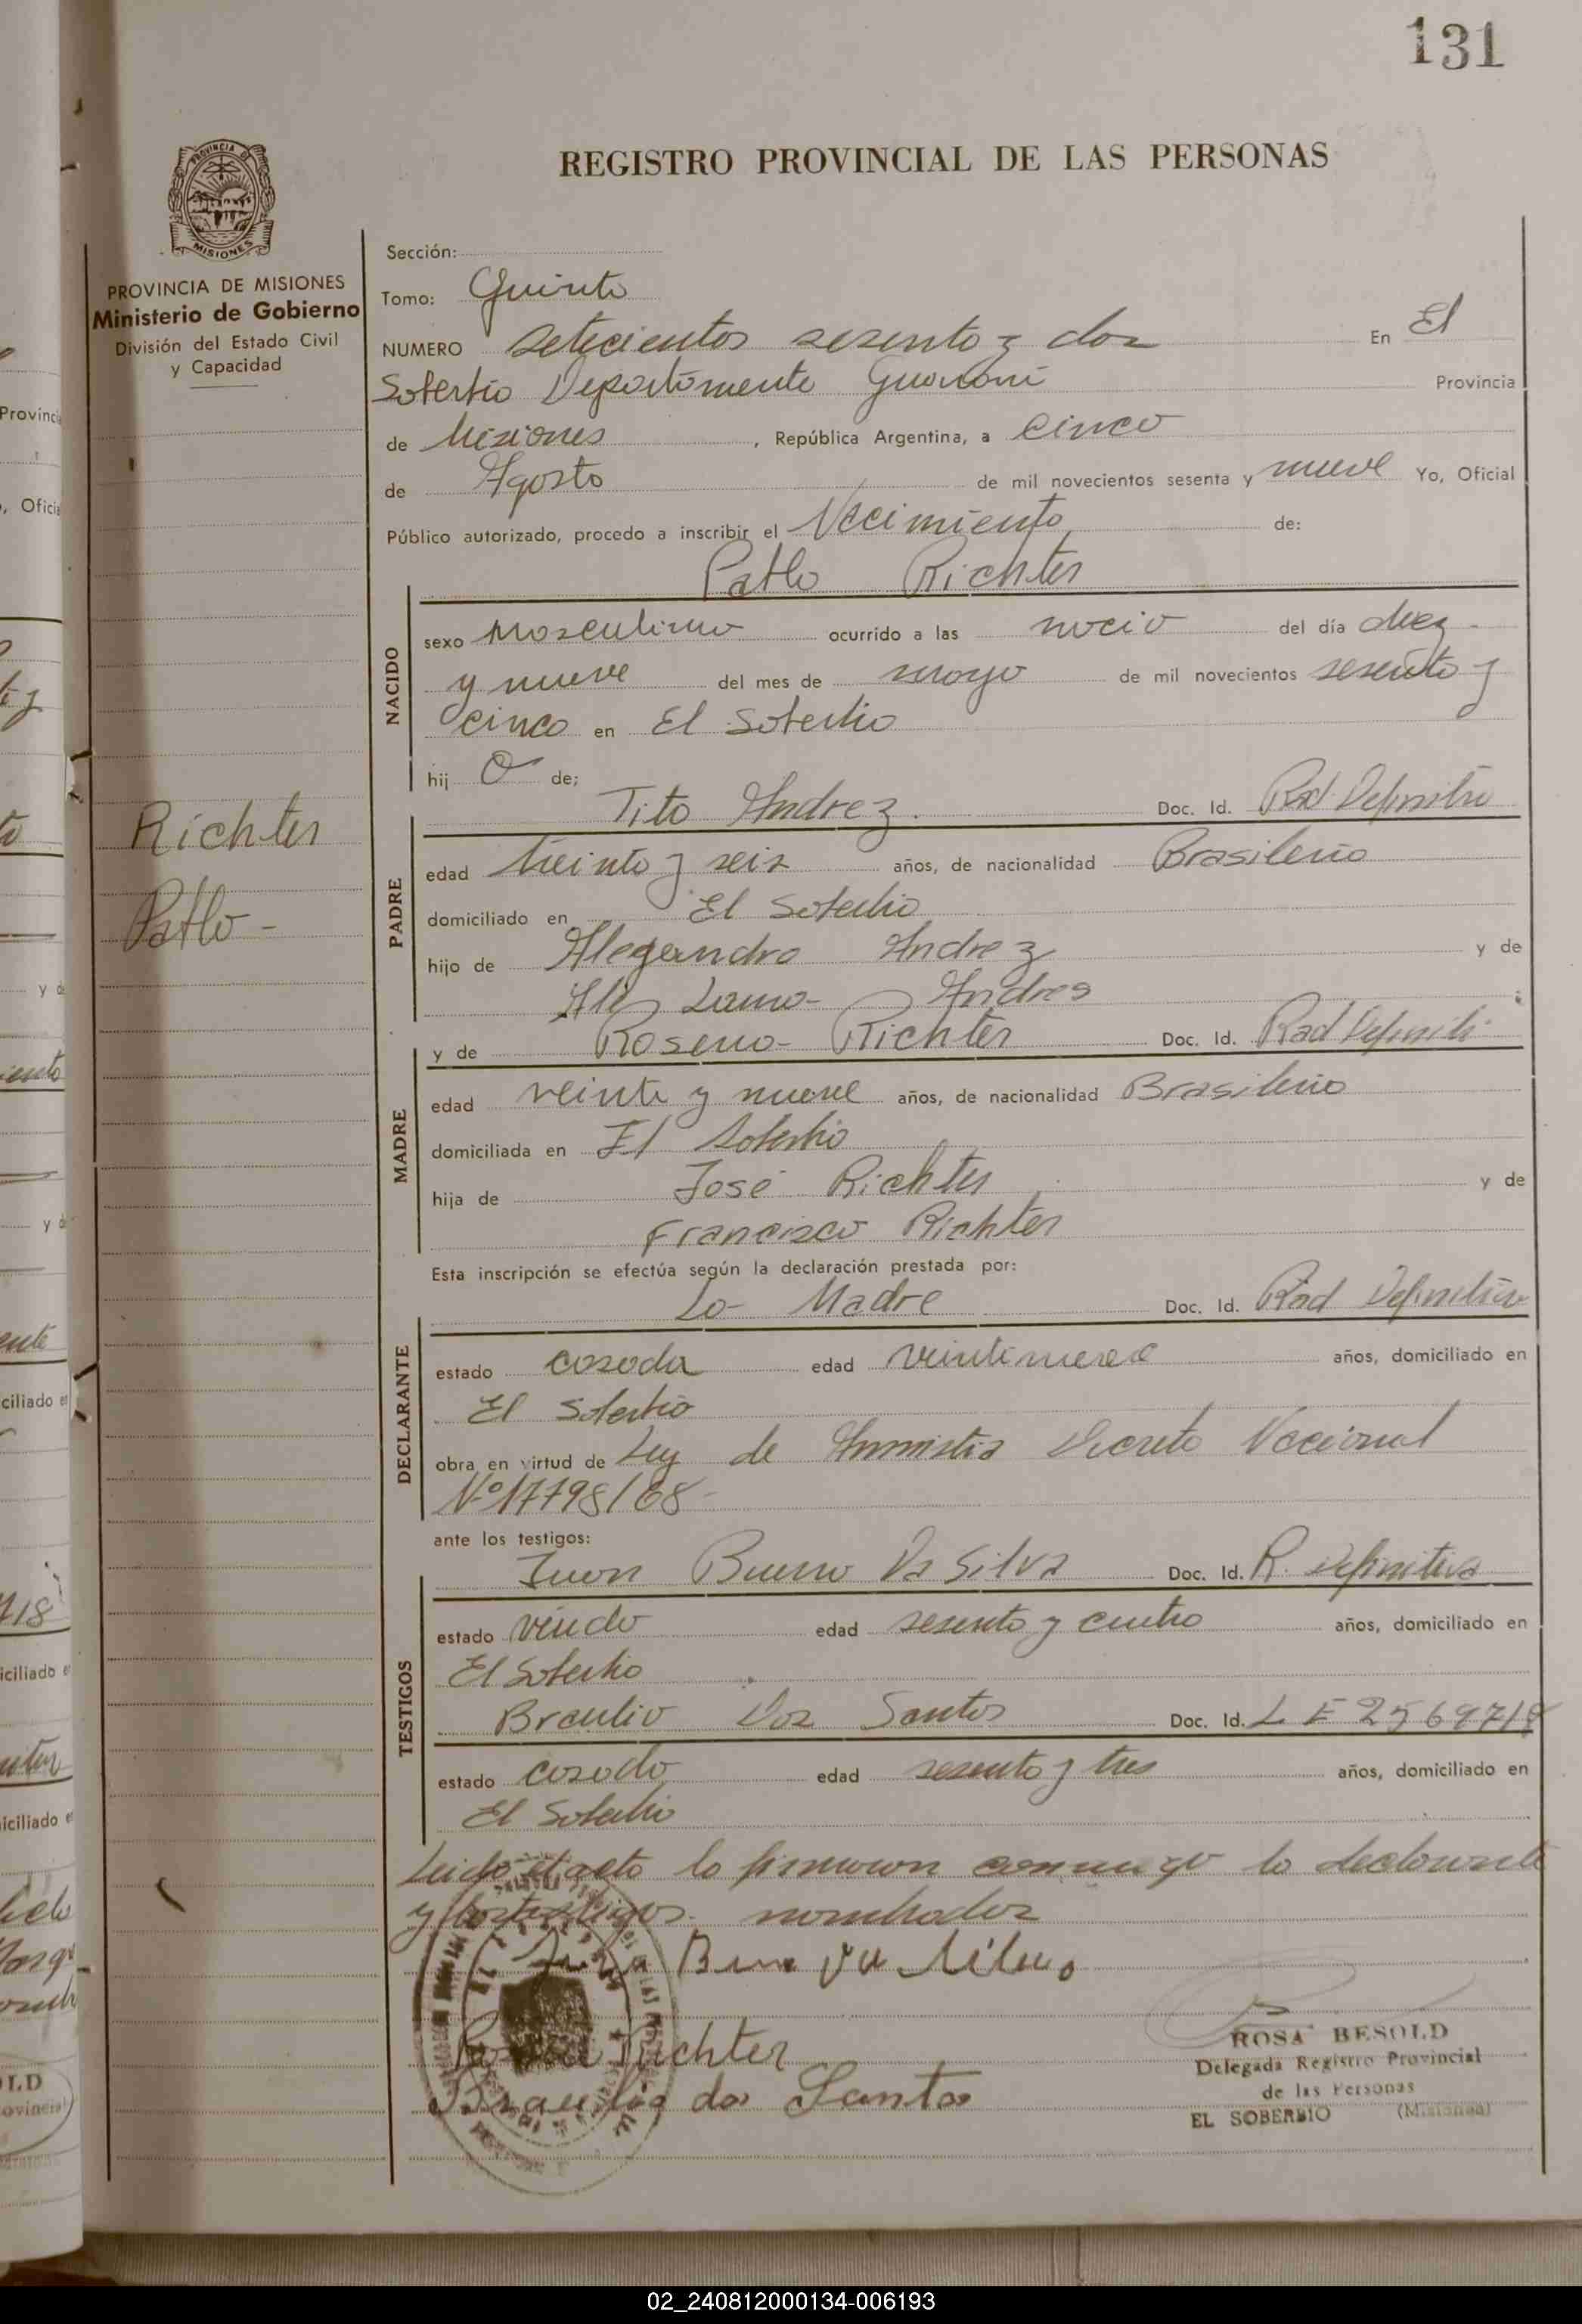 131
REGISTRO PROVINCIAL DE LAS PERSONAS
PROVINCIA DE MISIONES
MISIONES
PROVINCIA DE MISIONES
Ministerio de Gobierno
División del Estado Civil
y Capacidad
Sección:
Tomo: Quinto
NUMERO setecientos sesenta y dos En El
Soberbio Departamento Guaraní Provincia
de Misiones, República Argentina, a cinco
de Agosto de mil novecientos sesenta y nueve Yo, Oficial
Público autorizado, procedo a inscribir el Nacimiento de:
Pablo Richter
NACIDO
sexo masculino ocurrido a las nació del día diez
y nueve del mes de mayo de mil novecientos sesenta y
cinco en El Soberbio
hij o de;
Tito Andrez. Doc. Id. Rad Definitiva
PADRE
edad treinta y seis años, de nacionalidad Brasileña
domiciliado en El Soberbio
hijo de Alegandro Andrez y de
Lama- Andres
y de Rosena- Richter Doc. Id. Rad Definiti
MADRE
edad veinte y nueve años, de nacionalidad Brasileña
domiciliada en El Soberbio
hija de José Richter y de
Francisca Richter
Esta inscripción se efectúa según la declaración prestada por:
La- Madre Doc. Id. Rad Definitiva
DECLARANTE
estado casada edad veintinueve años, domiciliado en
El Soberbio
obra en virtud de Ley de Amnistia Decreto Nacional
Nº 17798/68-
ante los testigos:
Juan Bueno Da Silva Doc. Id. R. Definitiva
TESTIGOS
estado viudo edad sesenta y cuatro años, domiciliado en
El Soberbio
Braulio Dos Santos Doc. Id. L E 2569718
estado casado edad sesenta y tres años, domiciliado en
El Soberbio
Leido el acta la firmaron conmigo la declarante
y los testigos nombrados
Richter
Braulio do Santos
ROSA BESOLD
Delegada Registro Provincial
de las Personas
EL SOBERBIO (Misiones)
Richter
Pablo -
02_240812000134-006193